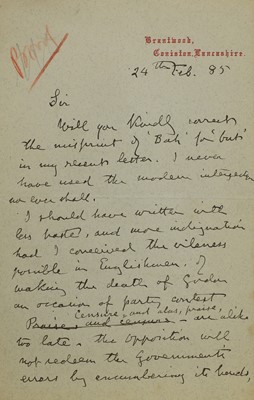 Brantwood,
Coniston, Lancashire.
24th Feb. 85
Sir
Will you kindly correct
the misprint of 'Bah' for 'but'
in my recent letter. I never
have used the modern interjection
nor ever shall.
I should have written with
less haste, and more indignation
had I conceived the vileness
possible in Englishmen, of
making the death of Gordon
an occasion of party contest
Censure, and alas, praise,
Praise and censure - are alike
too late. The opposition will
not redeem the Government's
errors by encumbering its hands,